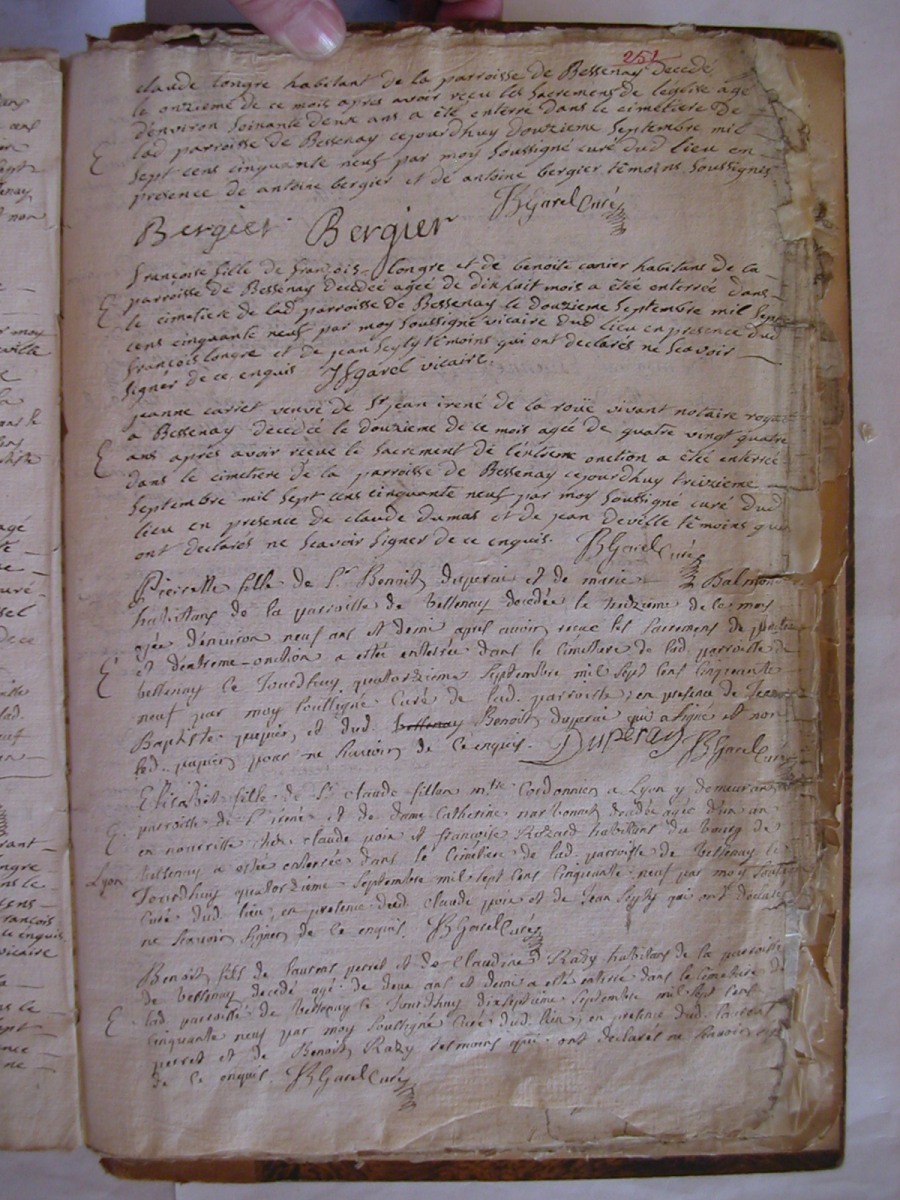 251
claude Longre habitant de la parroisse de Bessenay decedé
le onzieme de ce mois apres avoir reçu les sacremens de leglise agé
d'environ soixante deux ans a été enterré dans le cimetiere de
lad parroisse de Bessenay cejourdhuy douzieme septembre mil
sept cens cinquante neuf par moy soussigné curé dud lieu en
presence de antoine bergier et de antoine bergier témoins soussignés
Bergier Bergier JBGarel Curé
françoise fille de françois Longre et de benoite carier habitans de la
parroisse de Bessenay decedée agée de dixhuit mois a été enterrée dans
le cimetiere de lad parroisse de Bessenay le douzieme septembre mil sept
cens cinquante neuf par moy soussigné vicaire dud lieu en presence dud
françois Longre et de jean Seyty témoins qui ont declarés ne scavoir
signer de ce enquis garel vicaire.
jeanne cariet veuve de Sr jean irené de la roüe vivant notaire royal
a Bessenay decedée le douzieme de ce mois agée de quatre vingt quatre
ans aprés avoir recue le sacrement de l'éxtreme onction a été enterrée
dans le cimetiere de la parroisse de Bessenay cejourdhuy treizieme
septembre mil sept cens cinquante neuf par moy soussigné curé dud
lieu en presence de claude dumas et de jean deville témoins qui
ont declarés ne scavoir signer de ce enquis. JBGarel Curé
Pierrette fille de Sr Benoit duperai et de marie Balmon
habittans de la parroisse de Bessenay decedée le treizieme de ce mois
agée d'environ neuf ans et demi apres avoir recue les sacremens de
et dextreme-onction a estée enterrée dans le cimettiere de lad. parroisse de
bessenay ce Jourdhuy quatorzieme septembre mil sept cens cinquante
neuf par moy soussigné Curé de lad. parroisse, en presence de
Baptiste pupier, et dud. Benoit duperai qui a signé et non
led. pupier pour ne scavoir de ce enquis. Duperay JBGarel Curé
Elisabet fille de Sr claude fillon mtre Cordonnier a Lyon y demeurant
parroisse de St irené et de dame Catherine narbonnet decedée agée d'un an
en nourrisse chés claude poix et françoise Rozard habittans du bourg de
Lyon
bessenay a estée enterrée dans le cimetiere de lad. parroisse de Bessenay le
Jourdhuy quatorzieme septembre mil sept cens cinquante neuf par moy
Curé dud. lieu, en presence dud. claude poix et de Jean Seyty qui ont declarés
ne scavoir signer de ce enquis. JBGarel Curé
Benoit fils de laurens perret et de Claudine Razy habitans de la parroisse
de bessenay decedé agé de deux ans et demi a esté enterré dans le cimetiere de
lad. parroisse de bessenay le Jourdhuy dixseptieme septembre mil sept cens
cinquante neuf par moy soussigné Curé dud. lieu, en presence dud. laurent
perret et de Benoit Razy tesmoins qui ont declarés ne scavoir
de ce enquis. JBGarel Curé